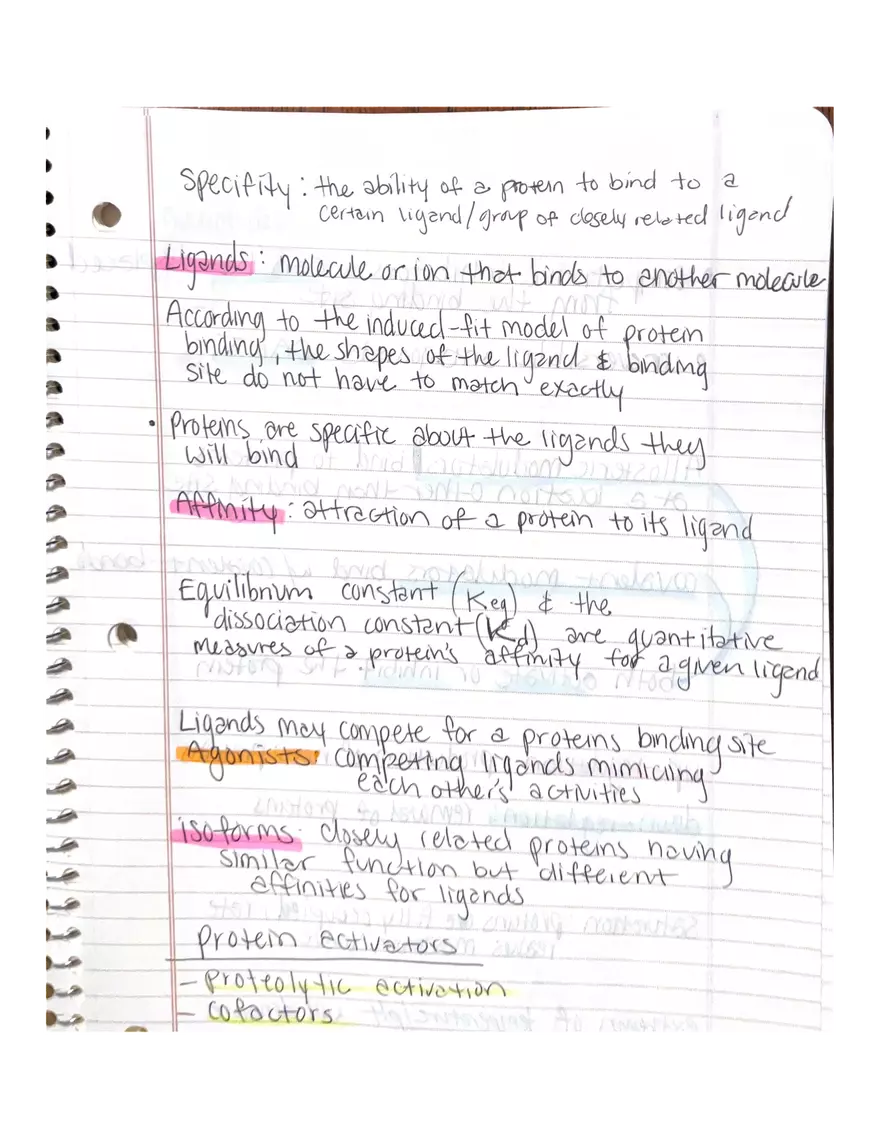 Specifity: the ability of a protein to bind to a
certain ligand/group of closely related ligand
Ligands: molecule or ion that binds to another molecule
According to the induced-fit model of protein
binding, the shapes of the ligand & binding
site do not have to match exactly
• Proteins are specific about the ligands they
will bind
Affinity: attraction of a protein to its ligand
Equilibrium constant (Keq) & the
dissociation constant (Kd) are quantitative
measures of a protein's affinity for a given ligand
Ligands may compete for a proteins binding site
Agonists: competing ligands mimicing
each other's activities
isoforms: closely related proteins having
similar function but different
affinities for ligands
Protein activators
- proteolytic activation
- cofactors